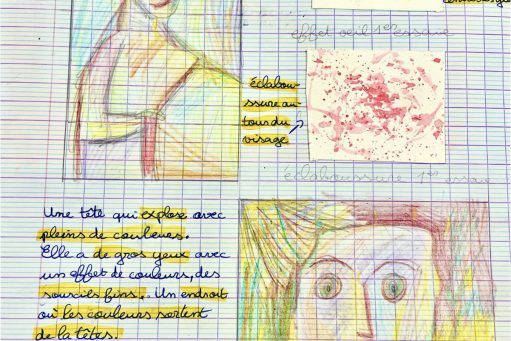 effet oeil 1er essaie
éclabou-
ssure au-
tous du
visage
éclaboussure 1er essaie
Une tête qui explose avec
pleins de couleurs.
Elle a de gros yeux avec
un effet de couleurs, des
sourcils fins. Un endroit
où les couleurs sortent
de la têtes.